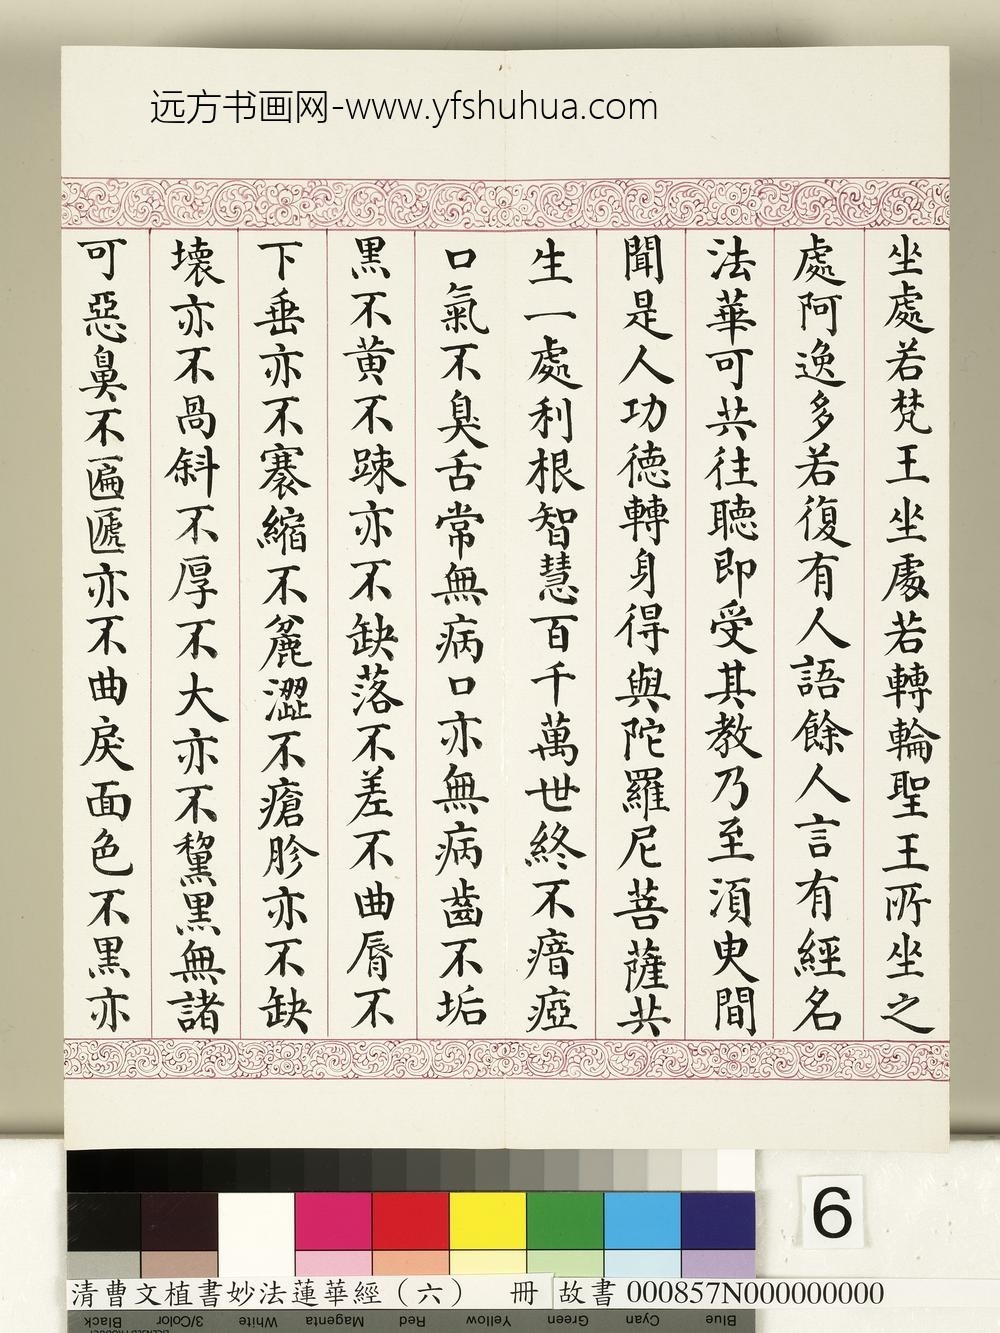 远方书画网-www.yfshuhua.com
坐處若梵王坐處若轉輪聖王所坐之
處阿逸多若復有人語餘人言有經名
法華可共往聽即受其教乃至須臾間
聞是人功德轉身得與陀羅尼菩薩共
生一處利根智慧百千萬世終不瘖瘂
口氣不臭舌常無病口亦無病齒不垢
黑不黄不踈亦不缺落不差不曲脣不
下垂亦不褰縮不麁澀不瘡胗亦不缺
壞亦不咼斜不厚不大亦不黧黒無諸
可惡鼻不匾㔸亦不曲戾面色不黒亦
6
清曹文植書妙法蓮華經（六） 冊 故書 000857N000000000
Black 3/Color White Magenta Red Yellow Green Cyan Blue